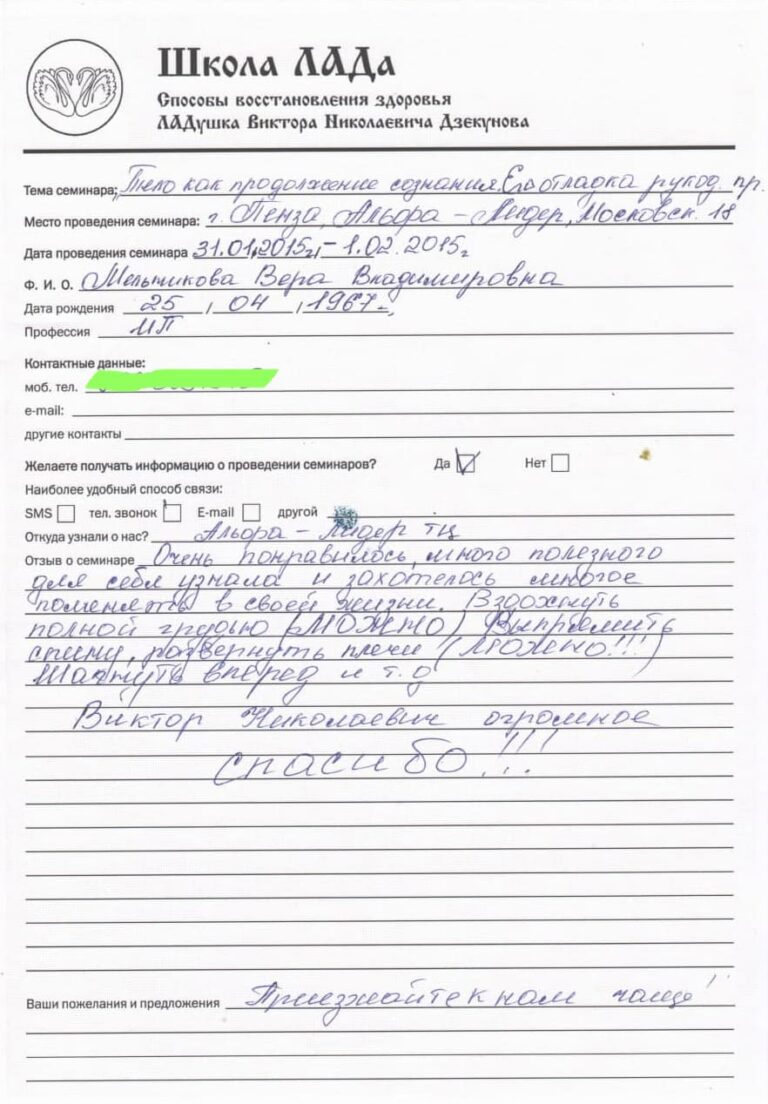 Школа ЛАДа
Способы восстановления здоровья
ЛАДушка Виктора Николаевича Дзекунова
Тема семинара: Тело как продолжение сознания. Его отладка рукод. пр.
Место проведения семинара: г. Пенза, Альфа - Лидер, Московск. 18
Дата проведения семинара 31.01.2015г. - 1.02.2015г
Ф. И. О. Мельникова Вера Владимировна
Дата рождения 25 / 04 / 1967г.
Профессия ИП
Контактные данные:
моб. тел.
e-mail:
другие контакты
Желаете получать информацию о проведении семинаров? Да Нет
Наиболее удобный способ связи:
SMS тел. звонок E-mail другой
Откуда узнали о нас? Альфа - Лидер ТЦ
Отзыв о семинаре Очень понравилось, много полезного
для себя узнала и захотелось многое
поменять в своей жизни. Вздохнуть
полной грудью (МОЖНО) Выпрямить
спину, развернуть плечи (МОЖНО!!!)
Шагнуть вперед и т.д
Виктор Николаевич огромное
спасибо!!!
Ваши пожелания и предложения Приезжайте к нам чаще!